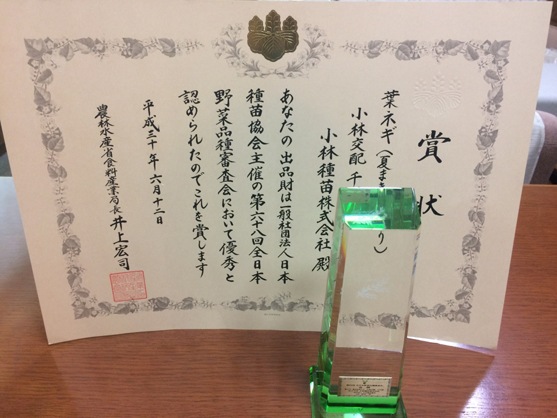 賞状
葉ネギ(夏ま り)
小林交配 千
小林種苗株式会社 殿
あなたの出品財は一般社団法人日本
種苗協会主催の第六十八回全日本
野菜品種審査会において優秀と
認められたのでこれを賞します
平成三十年六月十二日
農林水産省食料産業局長 井上宏司